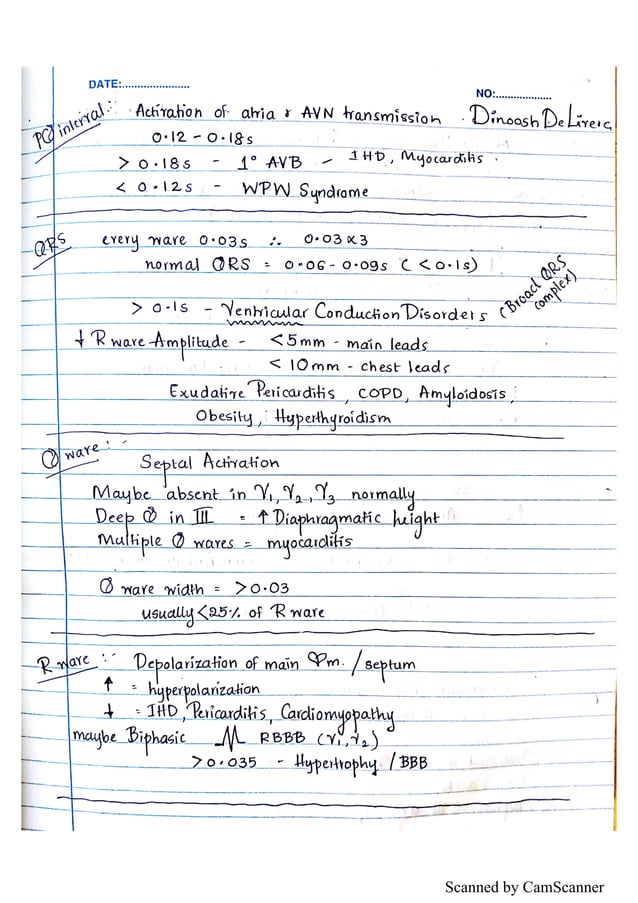 DATE:......................
NO:...................
PQ interval :- Activation of atria & AVN transmission . Dinoash DeLivera
0.12 - 0.18s
> 0.18s - 1° AVB - IHD, Myocarditis.
< 0.12s - WPW Syndrome
QRS every wave 0.03s ∴ 0.03x3
normal QRS = 0.06 - 0.09s (<0.1s)
> 0.1s - Ventricular Conduction Disorders (Broad QRS complex)
↓ R wave Amplitude - <5mm - main leads
< 10mm - chest leads
Exudative Pericarditis, COPD, Amyloidosis,
Obesity, Hyperthyroidism
Q wave :-
Septal Activation
Maybe absent in V1, V2, V3 normally
Deep Q in III = ↑ Diaphragmatic height
Multiple Q waves = myocarditis
Q wave width = >0.03
usually <25% of R wave
R wave :- Depolarization of main ♡m. / septum
↑ = hyperpolarization
↓ = IHD, Pericarditis, Cardiomyopathy
maybe Biphasic RBBB (V1, V2)
>0.035 - Hypertrophy / BBB
Scanned by CamScanner